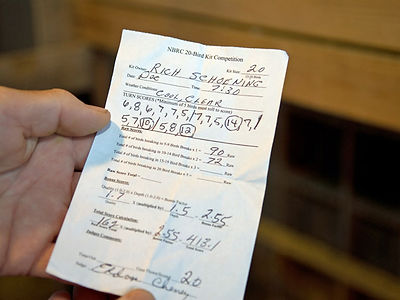 NBRC 20-Bird Kit Competition
Kit Owner: RICH SCHOENING Kit Size: 20
Date: Dec Time: 7:30
Weather Conditions: COOL, CLEAR
TURN SCORES (*Minimum of 5 birds must roll to score)
6, 8, 6, 7, 7, 5, 7, 7, 5, 14, 7,
5, 7, 10, 5, 8, 12
Raw Scores:
Total # of birds breaking in 5-9 Birds Breaks x 1 = 90 Raw
Total # of birds breaking in 10-14 Bird Breaks x 2 = 72 Raw
Total # of birds breaking in 15-19 Bird Breaks x 3 = Raw
Total # of birds breaking in 20 Bird Breaks x 5 = Raw
Raw Score Total =
Bonus Scores:
Quality (1.0-2.0) x Depth (1.0-2.0) = Bonus Factor
1.7 X (multiplied by) 1.5 = 2.55
Total Score Calculation:
162 X (multiplied by) 2.55 = 413.1
Judges Comments:
20
Judge: